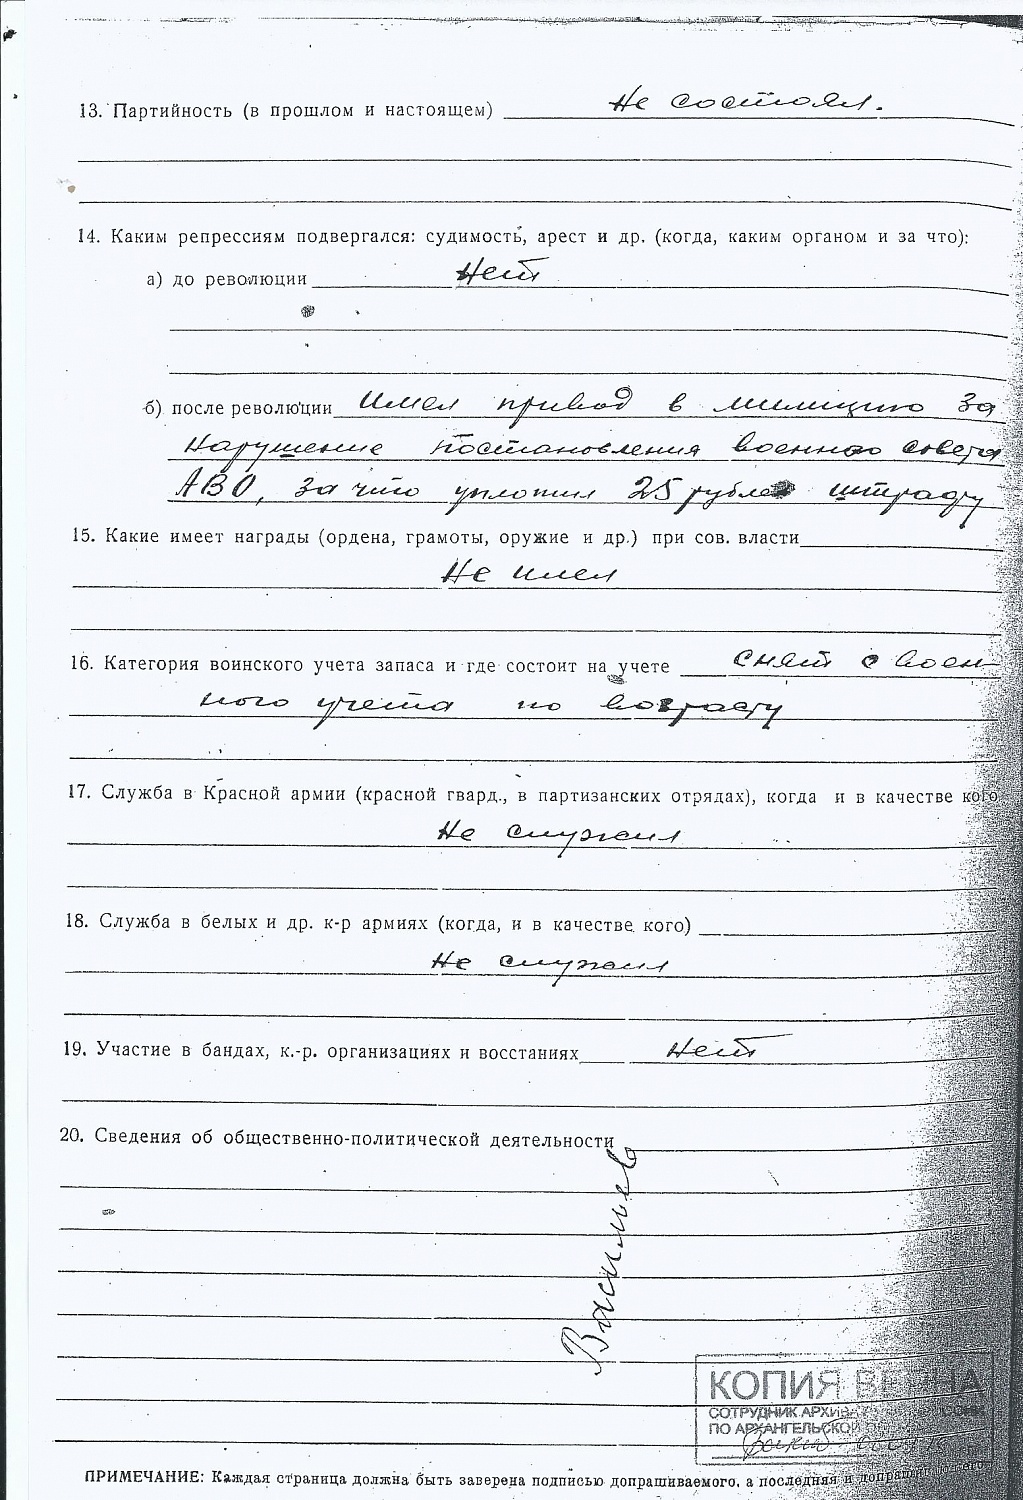 13. Партийность (в прошлом и настоящем) Не состоял.
14. Каким репрессиям подвергался: судимость, арест и др. (когда, каким органом и за что):
а) до революции Нет
б) после революции Имел привод в милицию за
нарушение постановления военного совета
АВО, за что уплотил 25 рублей штрафу
15. Какие имеет награды (ордена, грамоты, оружие и др.) при сов. власти
Не имел
16. Категория воинского учета запаса и где состоит на учете снят с воен-
ного учета по возрасту
17. Служба в Красной армии (красной гвард., в партизанских отрядах), когда и в качестве кого
Не служил
18. Служба в белых и др. к-р армиях (когда, и в качестве кого)
Не служил
19. Участие в бандах, к.-р. организациях и восстаниях Нет
20. Сведения об общественно-политической деятельности
Васильев
КОПИЯ ВЕРНА
СОТРУДНИК АРХИВА
ПО АРХАНГЕЛЬСКОЙ
ПРИМЕЧАНИЕ: Каждая страница должна быть заверена подписью допрашиваемого, а последняя и допрашивающего